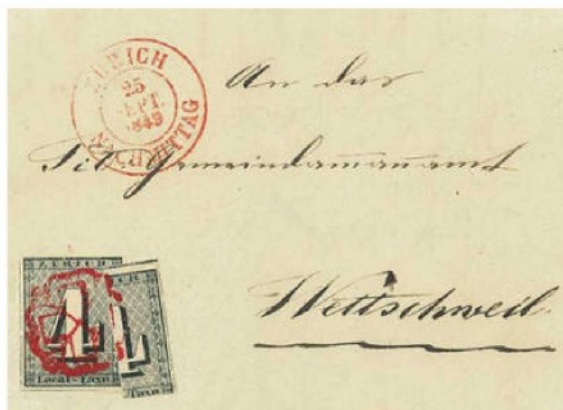 ZÜRICH
25
SEPT.
1849
NACHMITTAG
An das
Tit. Gemeindammannamt
Wettschweil
ZURICH
4
Local-Taxe
4
Taxe